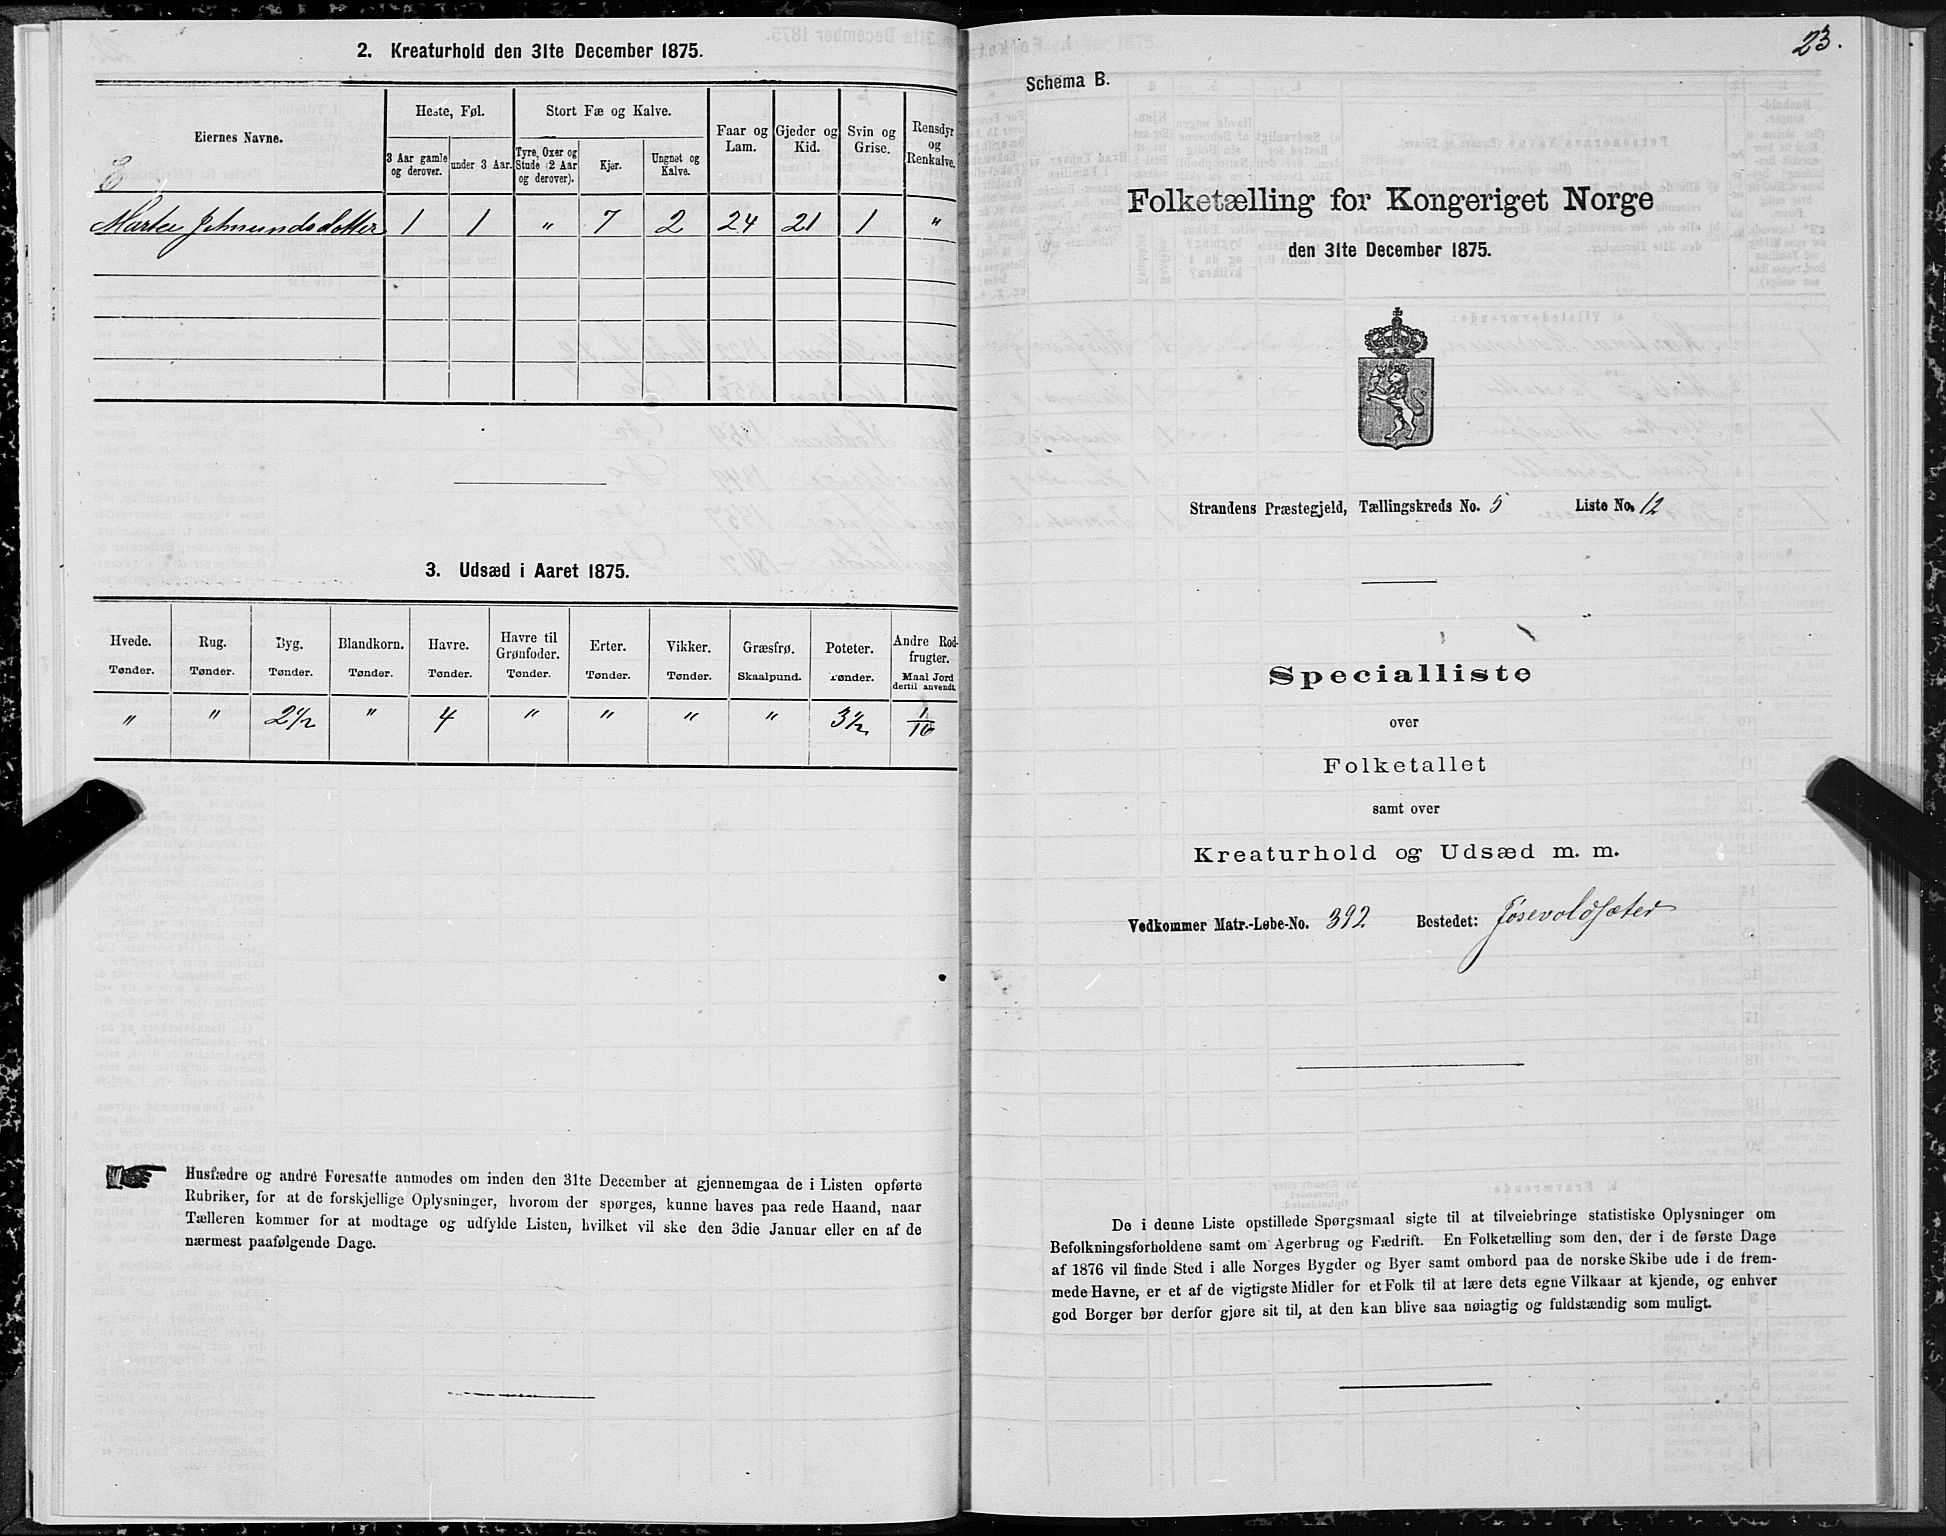 2. Kreaturhold den 31te December 1875.
Eiernes Navne.
Heste, Føl.
Stort Fæ og Kalve.
Faar og Lam.
Gjeder og Kid.
Svin og Grise.
Rensdyr og Renkalve.
3 Aar gamle og derover.
under 3 Aar.
Tyre, Oxer og Stude (2 Aar og derover).
Kjør.
Ungnet og Kalve.
E
Marte Johnundsdotter 1 1 " 7 2 24 21 1 "
3. Udsæd i Aaret 1875.
Hvede. Rug. Byg. Blandkorn. Havre. Havre til Grønfoder. Erter. Vikker. Græsfrø. Poteter. Andre Rodfrugter.
Tønder. Tønder. Tønder. Tønder. Tønder. Tønder. Tønder. Tønder. Skaalpund. Tønder. Maal Jord dertil anvendt.
" " 2 1/2 " 4 " " " " 3 1/2 1/16
Husfædre og andre Foresatte anmodes om inden den 31te December at gjennemgaa de i Listen opførte
Rubriker, for at de forskjellige Oplysninger, hvorom der spørges, kunne haves paa rede Haand, naar
Tælleren kommer for at modtage og udfylde Listen, hvilket vil ske den 3die Januar eller en af de
nærmest paafølgende Dage.
23.
Schema B.
Folketælling for Kongeriget Norge
den 31te December 1875.
Strandens Præstegjeld, Tællingskreds No. 5 Liste No. 12
Specialliste
over
Folketallet
samt over
Kreaturhold og Udsæd m. m.
Vedkommer Matr.-Løbe-No. 392 Bostedet: Fosevoldsæter
De i denne Liste opstillede Spørgsmaal sigte til at tilveiebringe statistiske Oplysninger om
Befolkningsforholdene samt om Agerbrug og Fædrift. En Folketælling som den, der i de første Dage
af 1876 vil finde Sted i alle Norges Bygder og Byer samt ombord paa de norske Skibe ude i de frem-
mede Havne, er et af de vigtigste Midler for et Folk til at lære dets egne Vilkaar at kjende, og enhver
god Borger bør derfor gjøre sit til, at den kan blive saa nøiagtig og fuldstændig som muligt.